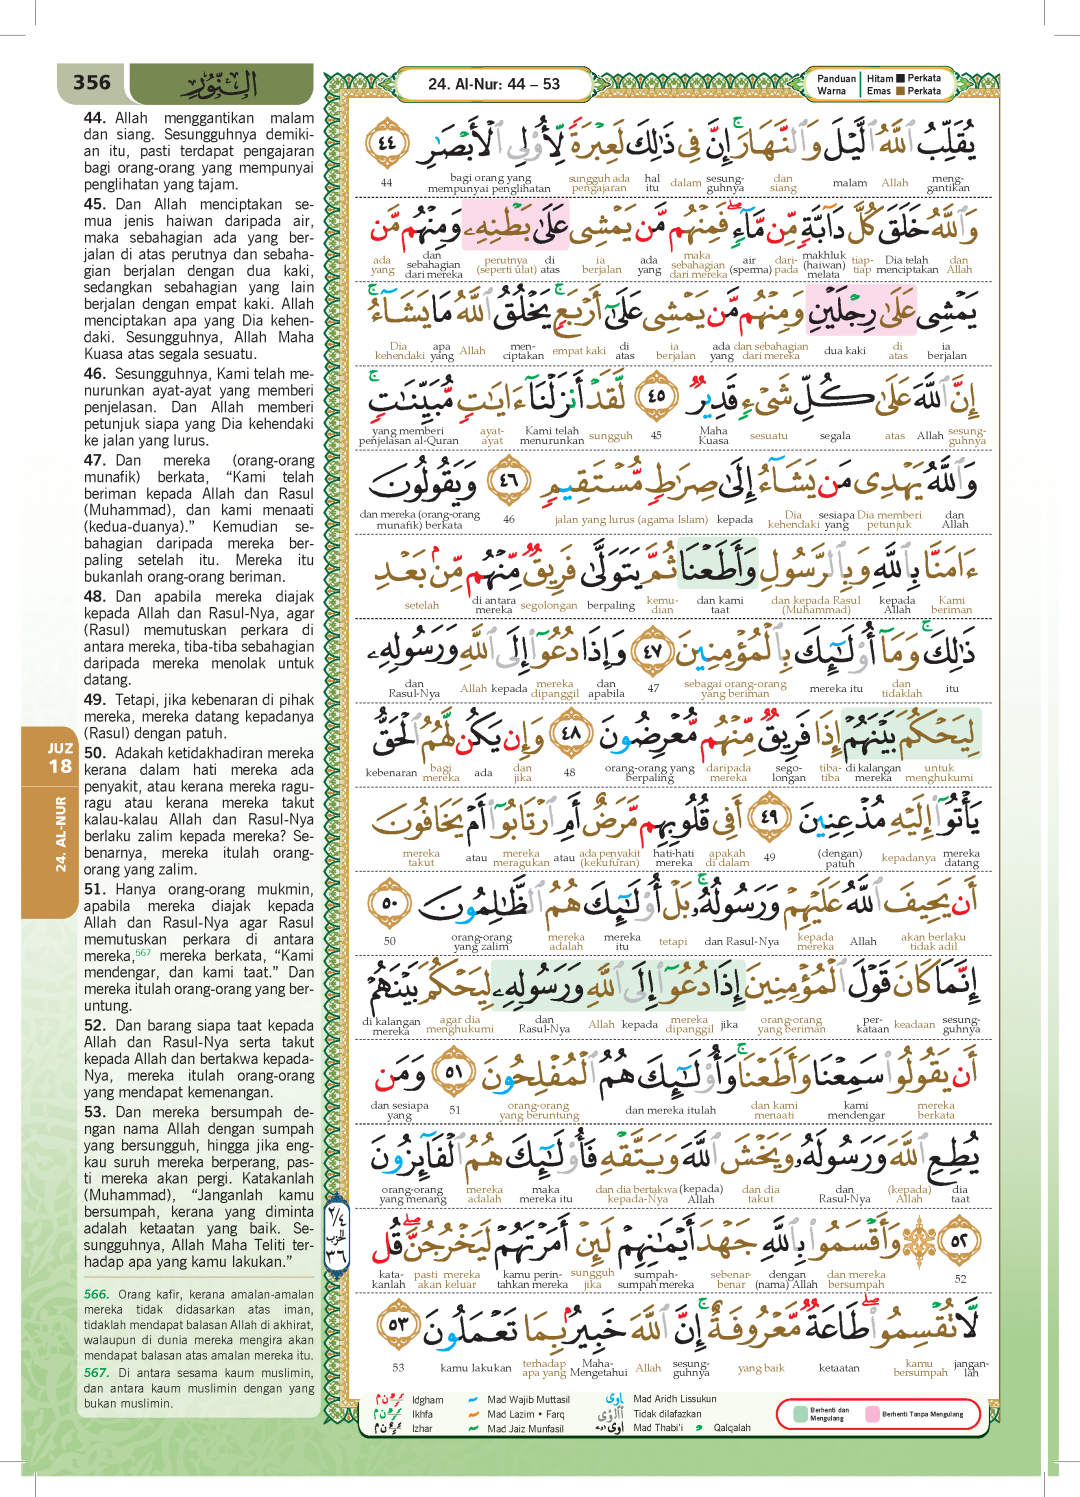 356
النُّور
24. Al-Nur: 44 – 53
Panduan Warna
Hitam ■ Perkata
Emas ■ Perkata
44. Allah menggantikan malam
dan siang. Sesungguhnya demiki-
an itu, pasti terdapat pengajaran
bagi orang-orang yang mempunyai
penglihatan yang tajam.
45. Dan Allah menciptakan se-
mua jenis haiwan daripada air,
maka sebahagian ada yang ber-
jalan di atas perutnya dan sebaha-
gian berjalan dengan dua kaki,
sedangkan sebahagian yang lain
berjalan dengan empat kaki. Allah
menciptakan apa yang Dia kehen-
daki. Sesungguhnya, Allah Maha
Kuasa atas segala sesuatu.
46. Sesungguhnya, Kami telah me-
nurunkan ayat-ayat yang memberi
penjelasan. Dan Allah memberi
petunjuk siapa yang Dia kehendaki
ke jalan yang lurus.
47. Dan mereka (orang-orang
munafik) berkata, “Kami telah
beriman kepada Allah dan Rasul
(Muhammad), dan kami menaati
(kedua-duanya).” Kemudian se-
bahagian daripada mereka ber-
paling setelah itu. Mereka itu
bukanlah orang-orang beriman.
48. Dan apabila mereka diajak
kepada Allah dan Rasul-Nya, agar
(Rasul) memutuskan perkara di
antara mereka, tiba-tiba sebahagian
daripada mereka menolak untuk
datang.
49. Tetapi, jika kebenaran di pihak
mereka, mereka datang kepadanya
(Rasul) dengan patuh.
50. Adakah ketidakhadiran mereka
kerana dalam hati mereka ada
penyakit, atau kerana mereka ragu-
ragu atau kerana mereka takut
kalau-kalau Allah dan Rasul-Nya
berlaku zalim kepada mereka? Se-
benarnya, mereka itulah orang-
orang yang zalim.
51. Hanya orang-orang mukmin,
apabila mereka diajak kepada
Allah dan Rasul-Nya agar Rasul
memutuskan perkara di antara
mereka,567 mereka berkata, “Kami
mendengar, dan kami taat.” Dan
mereka itulah orang-orang yang ber-
untung.
52. Dan barang siapa taat kepada
Allah dan Rasul-Nya serta takut
kepada Allah dan bertakwa kepada-
Nya, mereka itulah orang-orang
yang mendapat kemenangan.
53. Dan mereka bersumpah de-
ngan nama Allah dengan sumpah
yang bersungguh, hingga jika eng-
kau suruh mereka berperang, pas-
ti mereka akan pergi. Katakanlah
(Muhammad), “Janganlah kamu
bersumpah, kerana yang diminta
adalah ketaatan yang baik. Se-
sungguhnya, Allah Maha Teliti ter-
hadap apa yang kamu lakukan.”
566. Orang kafir, kerana amalan-amalan
mereka tidak didasarkan atas iman,
tidaklah mendapat balasan Allah di akhirat,
walaupun di dunia mereka mengira akan
mendapat balasan atas amalan mereka itu.
567. Di antara sesama kaum muslimin,
dan antara kaum muslimin dengan yang
bukan muslimin.
JUZ
18
24. AL-NUR
يُقَلِّبُ ٱللَّهُ ٱلَّيْلَ وَٱلنَّهَارَ ۚ إِنَّ فِى ذَٰلِكَ لَعِبْرَةً لِّأُو۟لِى ٱلْأَبْصَٰرِ ٤٤
meng-gantikan Allah malam dan siang sesung-guhnya dalam hal itu sungguh ada pengajaran bagi orang yang mempunyai penglihatan 44
وَٱللَّهُ خَلَقَ كُلَّ دَآبَّةٍ مِّن مَّآءٍ ۖ فَمِنْهُم مَّن يَمْشِى عَلَىٰ بَطْنِهِۦ وَمِنْهُم مَّن
dan Allah Dia telah menciptakan tiap-tiap makhluk (haiwan) melata dari-pada air (sperma) maka sebahagian dari mereka ada yang ia berjalan di atas perutnya (seperti ulat) dan sebahagian dari mereka ada yang
يَمْشِى عَلَىٰ رِجْلَيْنِ وَمِنْهُم مَّن يَمْشِى عَلَىٰٓ أَرْبَعٍ ۚ يَخْلُقُ ٱللَّهُ مَا يَشَآءُ ۚ
ia berjalan di atas dua kaki dan sebahagian dari mereka ada yang ia berjalan di atas empat kaki men-ciptakan Allah apa yang Dia kehendaki
إِنَّ ٱللَّهَ عَلَىٰ كُلِّ شَىْءٍ قَدِيرٌ ٤٥ لَّقَدْ أَنزَلْنَآ ءَايَٰتٍ مُّبَيِّنَٰتٍ ۚ
sesung-guhnya Allah atas segala sesuatu Maha Kuasa 45 sungguh Kami telah menurunkan ayat-ayat yang memberi penjelasan al-Quran
وَٱللَّهُ يَهْدِى مَن يَشَآءُ إِلَىٰ صِرَٰطٍ مُّسْتَقِيمٍ ٤٦ وَيَقُولُونَ
dan Allah Dia memberi petunjuk sesiapa yang Dia kehendaki kepada jalan yang lurus (agama Islam) 46 dan mereka (orang-orang munafik) berkata
ءَامَنَّا بِٱللَّهِ وَبِٱلرَّسُولِ وَأَطَعْنَا ثُمَّ يَتَوَلَّىٰ فَرِيقٌ مِّنْهُم مِّنۢ بَعْدِ
Kami beriman kepada Allah dan kepada Rasul (Muhammad) dan kami taat kemu-dian berpaling segolongan di antara mereka setelah
ذَٰلِكَ ۚ وَمَآ أُو۟لَٰٓئِكَ بِٱلْمُؤْمِنِينَ ٤٧ وَإِذَا دُعُوٓا۟ إِلَى ٱللَّهِ وَرَسُولِهِۦ
itu dan tidaklah mereka itu sebagai orang-orang yang beriman 47 dan apabila mereka dipanggil kepada Allah dan Rasul-Nya
لِيَحْكُمَ بَيْنَهُمْ إِذَا فَرِيقٌ مِّنْهُم مُّعْرِضُونَ ٤٨ وَإِن يَكُن لَّهُمُ ٱلْحَقُّ
untuk menghukumi di kalangan mereka tiba-tiba sego-longan daripada mereka orang-orang yang berpaling 48 dan jika ada bagi mereka kebenaran
يَأْتُوٓا۟ إِلَيْهِ مُذْعِنِينَ ٤٩ أَفِى قُلُوبِهِم مَّرَضٌ أَمِ ٱرْتَابُوٓا۟ أَمْ يَخَافُونَ
mereka datang kepadanya (dengan) patuh 49 apakah di dalam hati-hati mereka ada penyakit (kekufuran) atau mereka meragukan atau mereka takut
أَن يَحِيفَ ٱللَّهُ عَلَيْهِمْ وَرَسُولُهُۥ ۚ بَلْ أُو۟لَٰٓئِكَ هُمُ ٱلظَّٰلِمُونَ ٥٠
akan berlaku tidak adil Allah kepada mereka dan Rasul-Nya tetapi mereka itu mereka adalah orang-orang yang zalim 50
إِنَّمَا كَانَ قَوْلَ ٱلْمُؤْمِنِينَ إِذَا دُعُوٓا۟ إِلَى ٱللَّهِ وَرَسُولِهِۦ لِيَحْكُمَ بَيْنَهُمْ
sesung-guhnya keadaan per-kataan orang-orang yang beriman jika mereka dipanggil kepada Allah dan Rasul-Nya agar dia menghukumi di kalangan mereka
أَن يَقُولُوا۟ سَمِعْنَا وَأَطَعْنَا ۚ وَأُو۟لَٰٓئِكَ هُمُ ٱلْمُفْلِحُونَ ٥١ وَمَن
mereka berkata kami mendengar dan kami menaati dan mereka itulah orang-orang yang beruntung 51 dan sesiapa yang
يُطِعِ ٱللَّهَ وَرَسُولَهُۥ وَيَخْشَ ٱللَّهَ وَيَتَّقْهِ فَأُو۟لَٰٓئِكَ هُمُ ٱلْفَآئِزُونَ
dia taat (kepada) Allah dan Rasul-Nya dan dia takut (kepada) Allah dan dia bertakwa kepada-Nya maka mereka itu mereka adalah orang-orang yang menang
٢/٤ الحزب ٣٦
٥٢ وَأَقْسَمُوا۟ بِٱللَّهِ جَهْدَ أَيْمَٰنِهِمْ لَئِنْ أَمَرْتَهُمْ لَيَخْرُجُنَّ ۖ قُل
52 dan mereka bersumpah dengan (nama) Allah sebenar-benar sumpah-sumpah mereka sungguh jika kamu perin-tahkan mereka pasti mereka akan keluar kata-kanlah
لَّا تُقْسِمُوا۟ ۖ طَاعَةٌ مَّعْرُوفَةٌ ۚ إِنَّ ٱللَّهَ خَبِيرٌۢ بِمَا تَعْمَلُونَ ٥٣
jangan-lah kamu bersumpah ketaatan yang baik sesung-guhnya Allah Maha-Mengetahui terhadap apa yang kamu lakukan 53
Idgham
Ikhfa
Izhar
Mad Wajib Muttasil
Mad Lazim • Farq
Mad Jaiz Munfasil
Mad Aridh Lissukun
Tidak dilafazkan
Mad Thabi'i
Qalqalah
Berhenti dan Mengulang
Berhenti Tanpa Mengulang